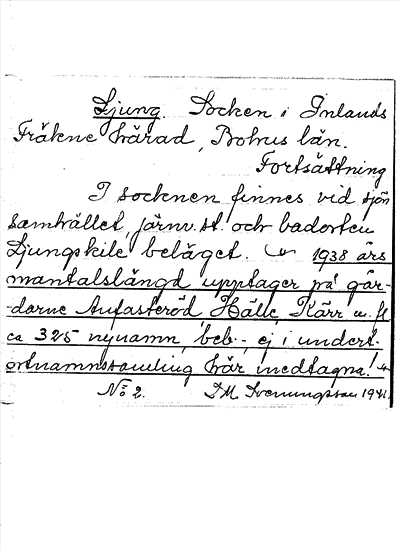 Ljung. Socken i Inlands
Fräkne härad, Bohus län.
Fortsättning
I socknen finnes vid sjön
samhället, järnv.st. och badorten
Ljungskile beläget. 1938 års
mantalslängd upptager på går-
-darne Aufasteröd Hälle, Kärr m. fl
ca 325 nynamn, beb-, ej i undert.
ortnamnssamling här medtagna!
No 2. J M Svenungsson 1941.